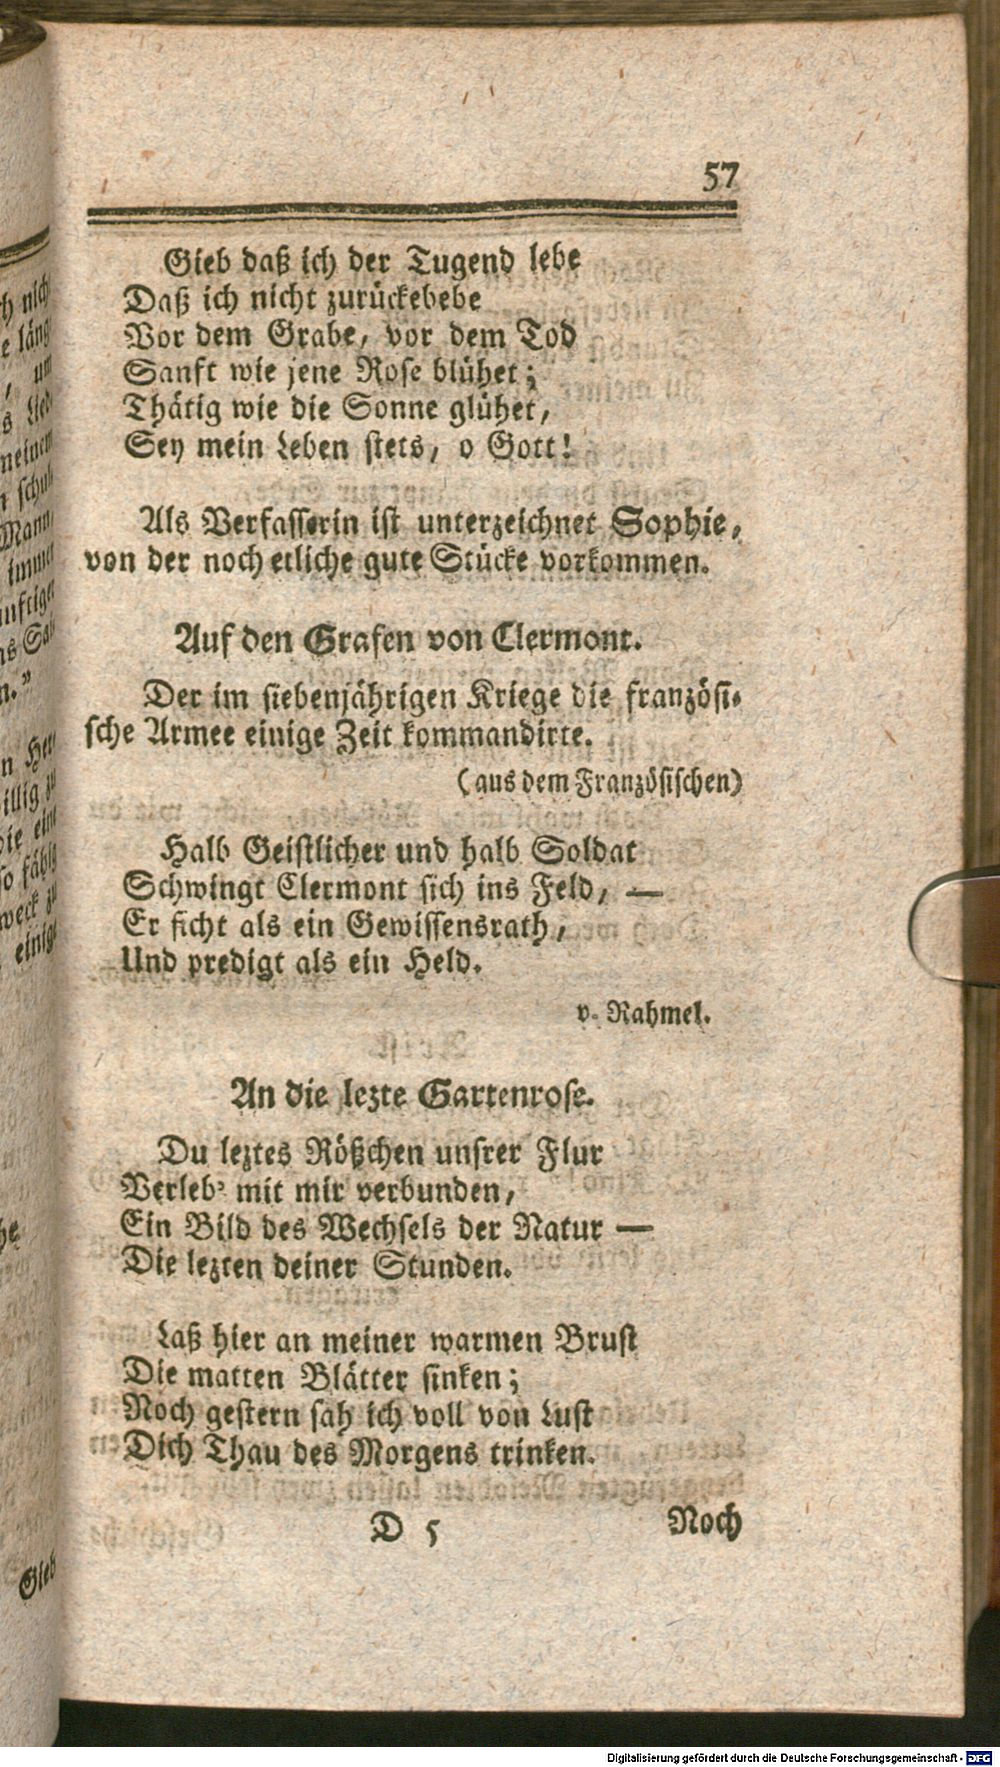 57
Gieb daß ich der Tugend lebe
Daß ich nicht zurückebebe
Vor dem Grabe, vor dem Tod
Sanft wie jene Rose blühet;
Thätig wie die Sonne glühet,
Sey mein Leben stets, o Gott!
Als Verfasserin ist unterzeichnet Sophie,
von der noch etliche gute Stücke vorkommen.
Auf den Grafen von Clermont.
Der im siebenjährigen Kriege die französi-
sche Armee einige Zeit kommandirte.
(aus dem Französischen)
Halb Geistlicher und halb Soldat
Schwingt Clermont sich ins Feld, —
Er ficht als ein Gewissensrath,
Und predigt als ein Held.
v. Rahmel.
An die lezte Gartenrose.
Du leztes Rößchen unsrer Flur
Verleb' mit mir verbunden,
Ein Bild des Wechsels der Natur —
Die lezten deiner Stunden.
Laß hier an meiner warmen Brust
Die matten Blätter sinken;
Noch gestern sah ich voll von Lust
Dich Thau des Morgens trinken.
D 5 Noch
Digitalisierung gefördert durch die Deutsche Forschungsgemeinschaft - DFG